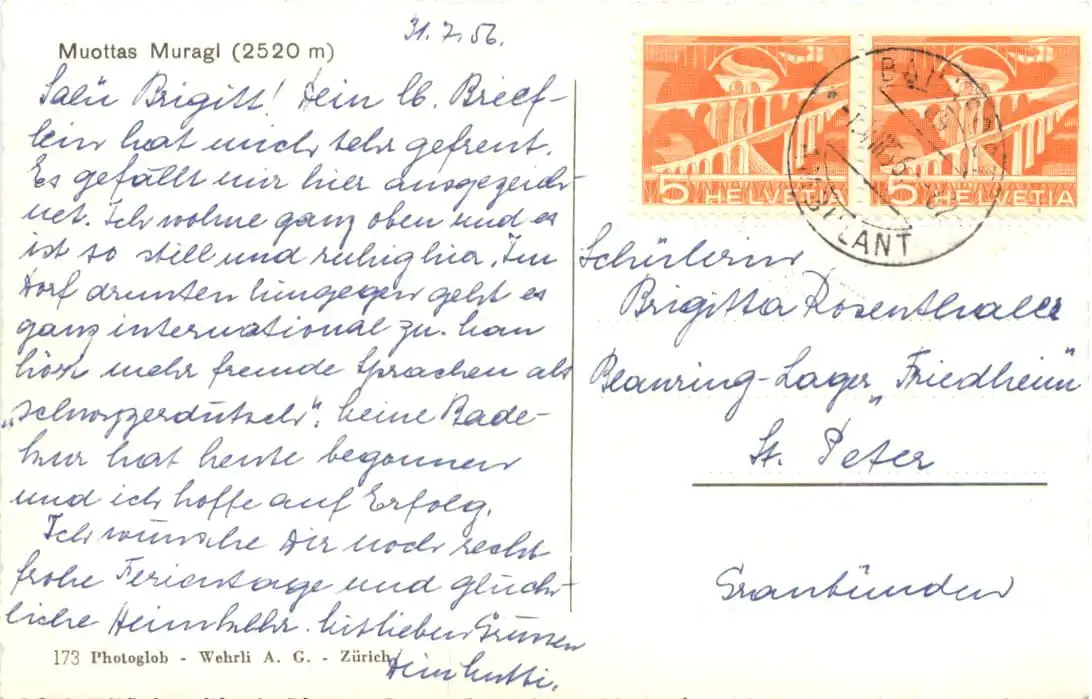 31.7.56.
Muottas Muragl (2520 m)
Salü Brigitt! Dein lb. Brief-
lein hat mich sehr gefreut.
Es gefällt mir hier ausgezeich-
net. Ich wohne ganz oben und es
ist so still und ruhig hier. Im
Dorf drunten hingegen geht es
ganz international zu. Man
hört mehr fremde Sprachen als
„schwyzerdütsch". Meine Bade-
kur hat heute begonnen
und ich hoffe auf Erfolg.
Ich wünsche Dir noch recht
frohe Ferientage und glück-
liche Heimkehr. Mit lieben Grüssen
Dein Mutti.
173 Photoglob - Wehrli A. G. - Zürich
5 HELVETIA
5 HELVETIA
Schülerin
Brigitta Rosenthaler
Blauring-Lager „Friedheim"
St. Peter
Graubünden